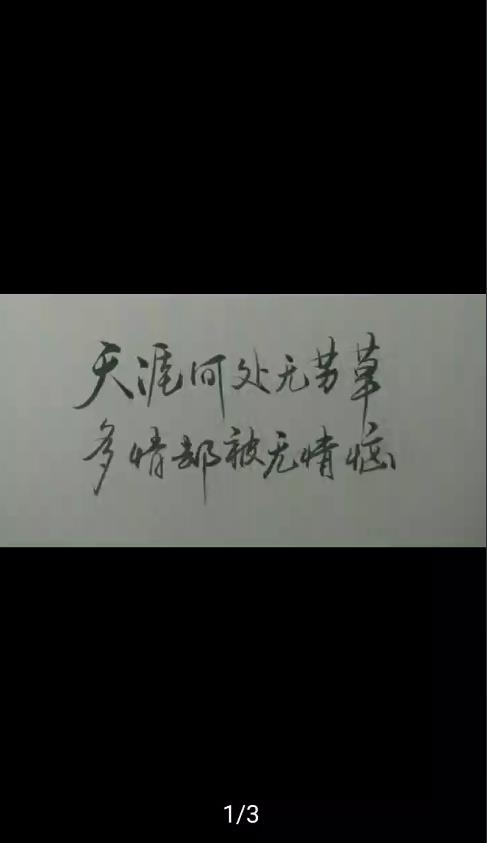 天涯何处无芳草
多情却被无情恼
1/3